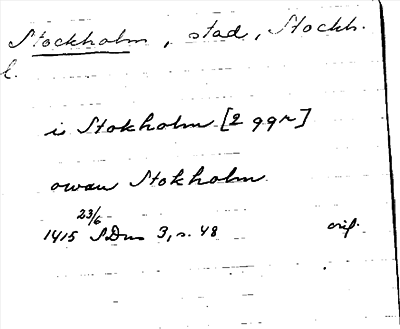 Stockholm, stad, Stockh.
l.
i Stokholm [2 ggr]
owan Stokholm
23/6
1415 SDns 3, s. 48 orig.